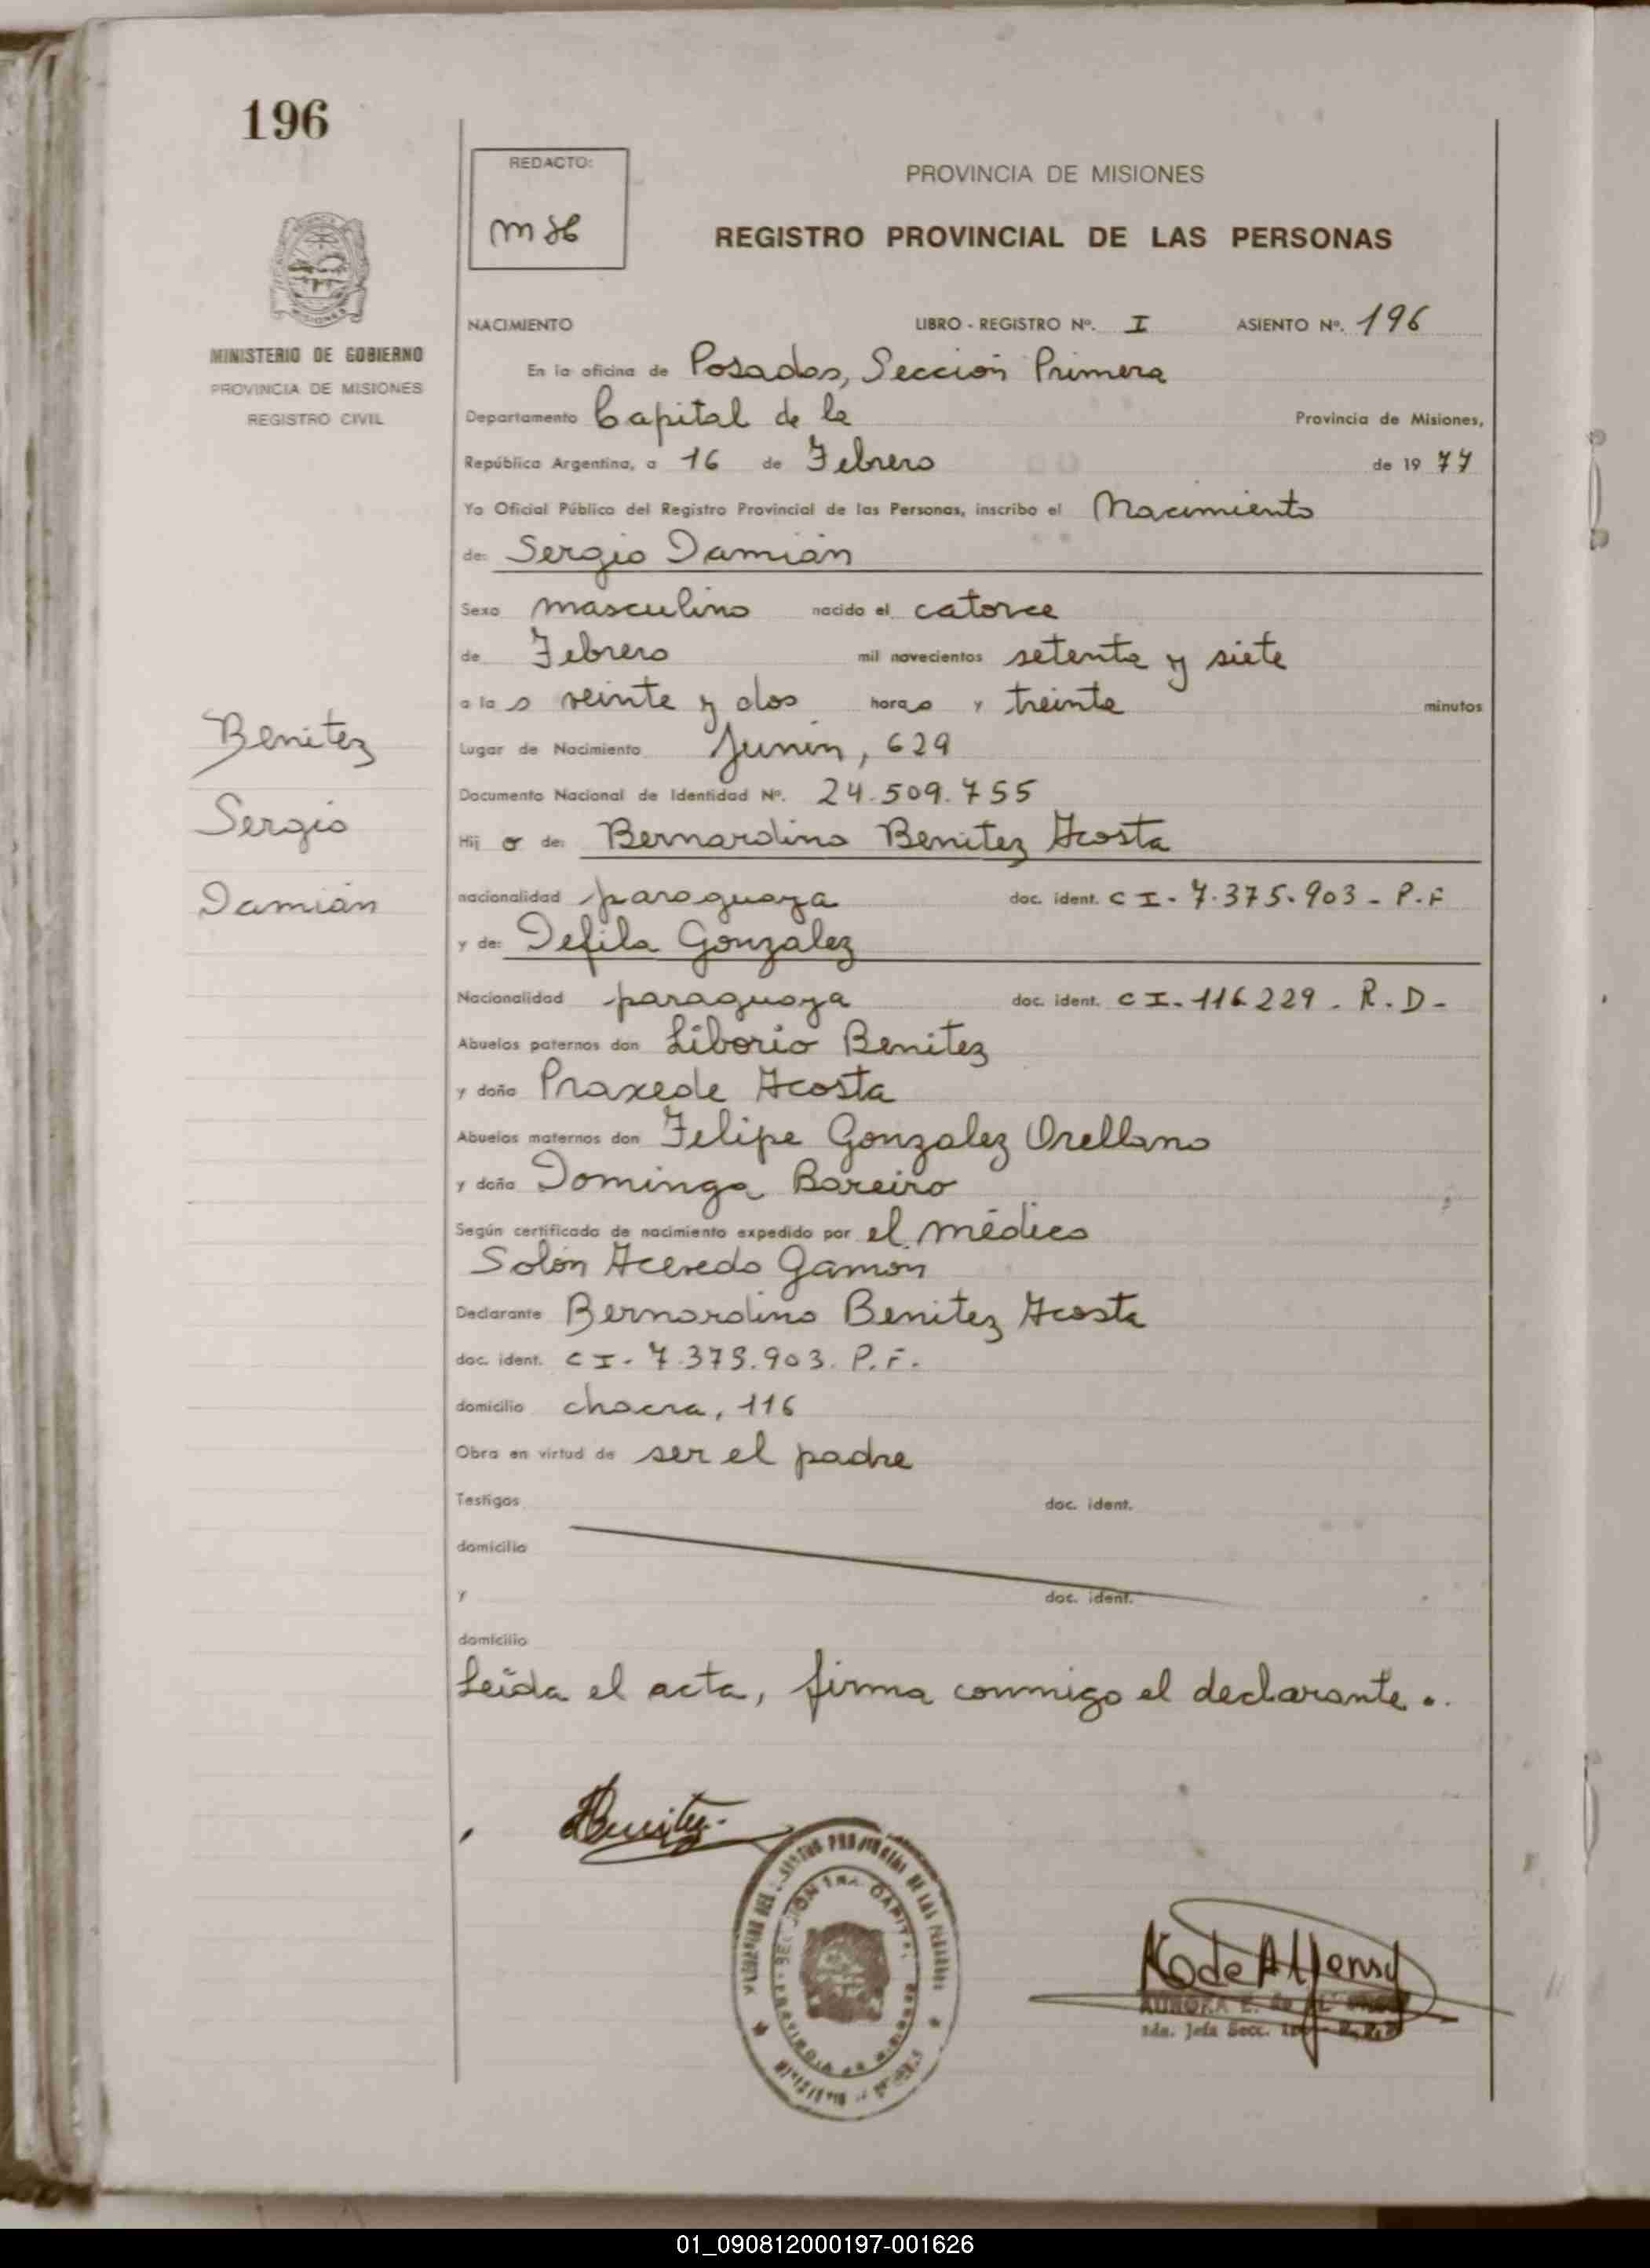 196
REDACTO:
PROVINCIA DE MISIONES
REGISTRO PROVINCIAL DE LAS PERSONAS
MINISTERIO DE GOBIERNO
PROVINCIA DE MISIONES
REGISTRO CIVIL
NACIMIENTO LIBRO - REGISTRO Nº. I ASIENTO Nº. 196
En la oficina de Posadas, Sección Primera
Departamento Capital de la Provincia de Misiones,
República Argentina, a 16 de Febrero de 19 77
Yo Oficial Público del Registro Provincial de las Personas, inscribo el Nacimiento
de: Sergio Damián
Sexo masculino nacido el catorce
de Febrero mil novecientos setenta y siete
a la s veinte y dos horas y treinta minutos
Benitez
Sergio
Damián
Lugar de Nacimiento Junín, 629
Documento Nacional de Identidad Nº. 24.509.755
Hij o de: Bernardino Benitez Acosta
nacionalidad paraguaya doc. ident. C I - 7.375.903 - P.F
y de: Defila Gonzalez
Nacionalidad paraguaya doc. ident. C I - 116229 - R.D-
Abuelos paternos don Liborio Benitez
y doña Praxede Acosta
Abuelos maternos don Felipe Gonzalez Orellano
y doña Dominga Bareiro
Según certificado de nacimiento expedido por el médico
Solón Acevedo Gamón
Declarante Bernardino Benitez Acosta
doc. ident. C I - 7.375.903. P.F.
domicilio chacra, 116
Obra en virtud de ser el padre
Testigos doc. ident.
domicilio
y doc. ident.
domicilio
Leída el acta, firma conmigo el declarante..
Benitez
01_090812000197-001626